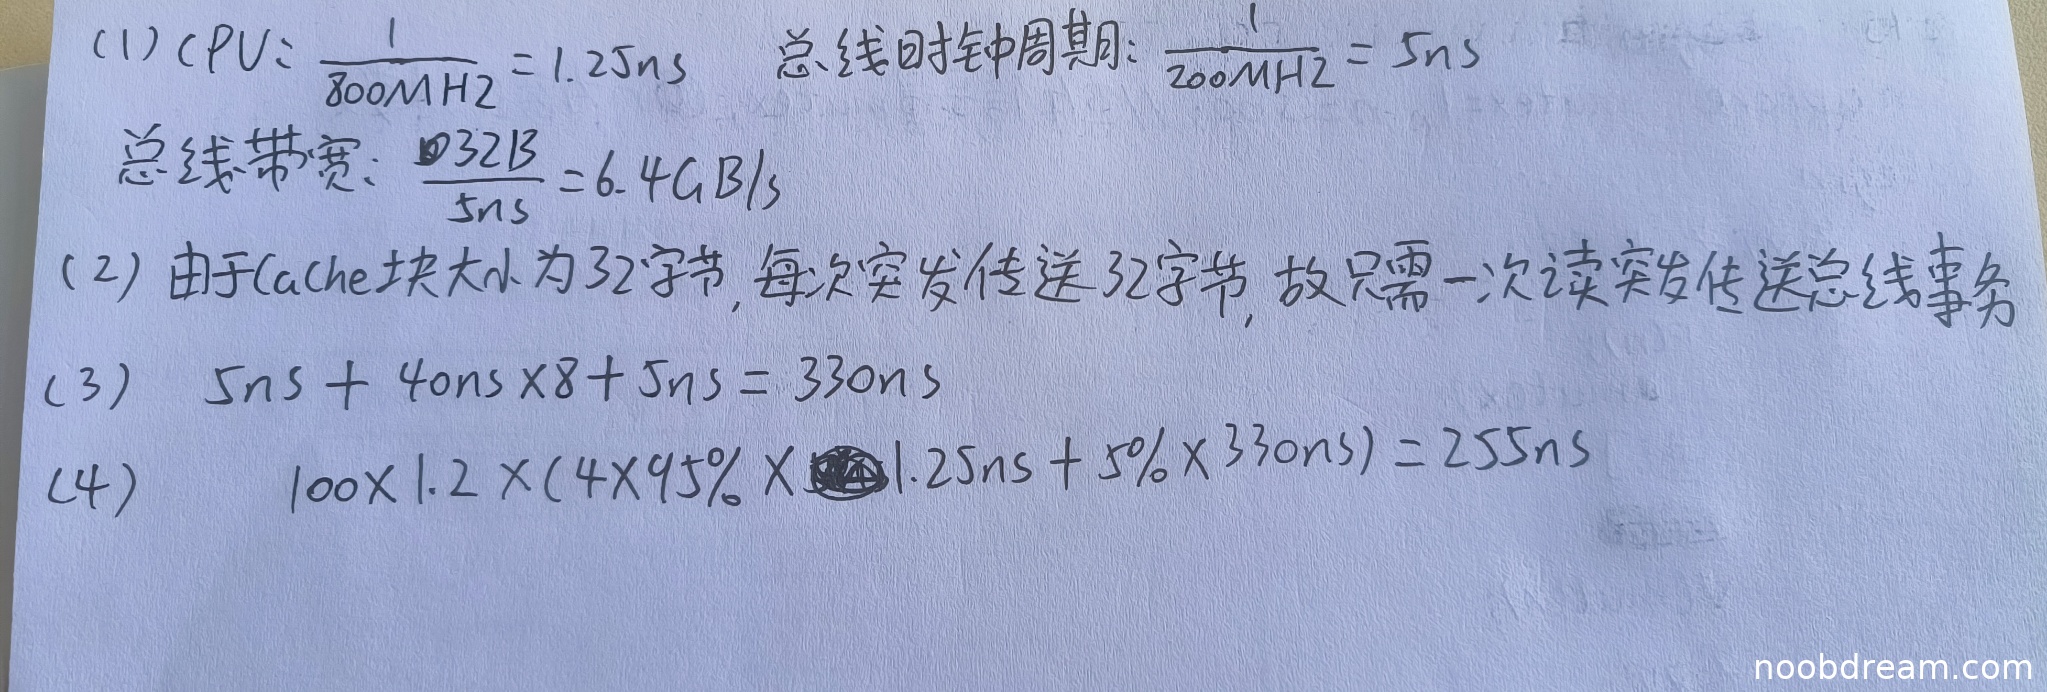 (1) CPU: 1/800MHZ = 1.25ns 总线时钟周期: 1/200MHZ = 5ns
总线带宽: 32B/5ns = 6.4GB/s
(2) 由于Cache块大小为32字节,每次突发传送32字节,故只需一次读突发传送总线事务
(3) 5ns + 40ns×8+5ns = 330ns
(4) 100×1.2×(4×95%×1.25ns+5%×330ns) = 255ns
noobdream.com